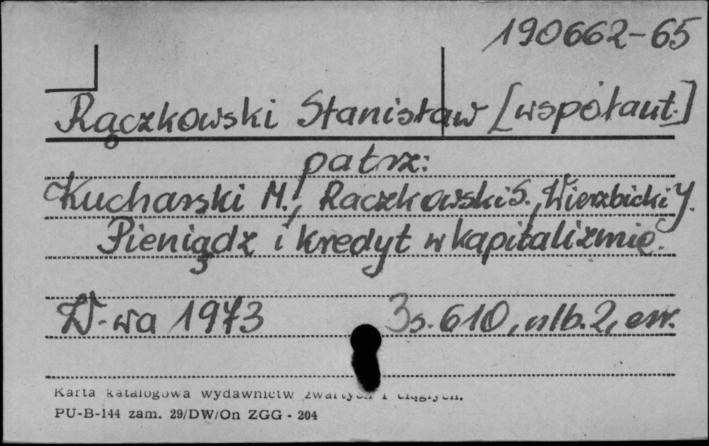 190662-65
Rączkowski Stanisław [współaut.]
patrz:
Kucharski M., Rączkowski S., Wierzbicki J.
Pieniądz i kredyt w kapitalizmie.
W-wa 1973 s. 610, nlb. 2, err.
Karta katalogowa wydawnictw zwartych i ciągłych.
PU-B-144 zam. 29/DW/On ZGG - 204